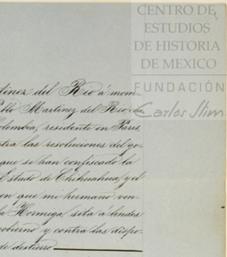 CENTRO DE
ESTUDIOS
DE HISTORIA
DE MEXICO
FUNDACIÓN
Carlos Slim
tinez del Rio á mom
Pablo Martinez del Rio, de
Colombia, residente en Paris,
ntra las resoluciones del go-
que se han confiscado la
Estado de Chihuahua, y el
en que mi hermano ven
la Hormiga sita á lindes
obierno y contra las dispo-
de destierro